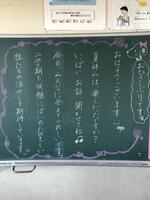 おひさしぶりです
おはようございます。
夏休みは楽しかったですか?
いっぱいお話聞かせてね
今日みんなに会えてうれしいです。
二学期も笑顔いっぱいの
生たちの活やくを期待しています。